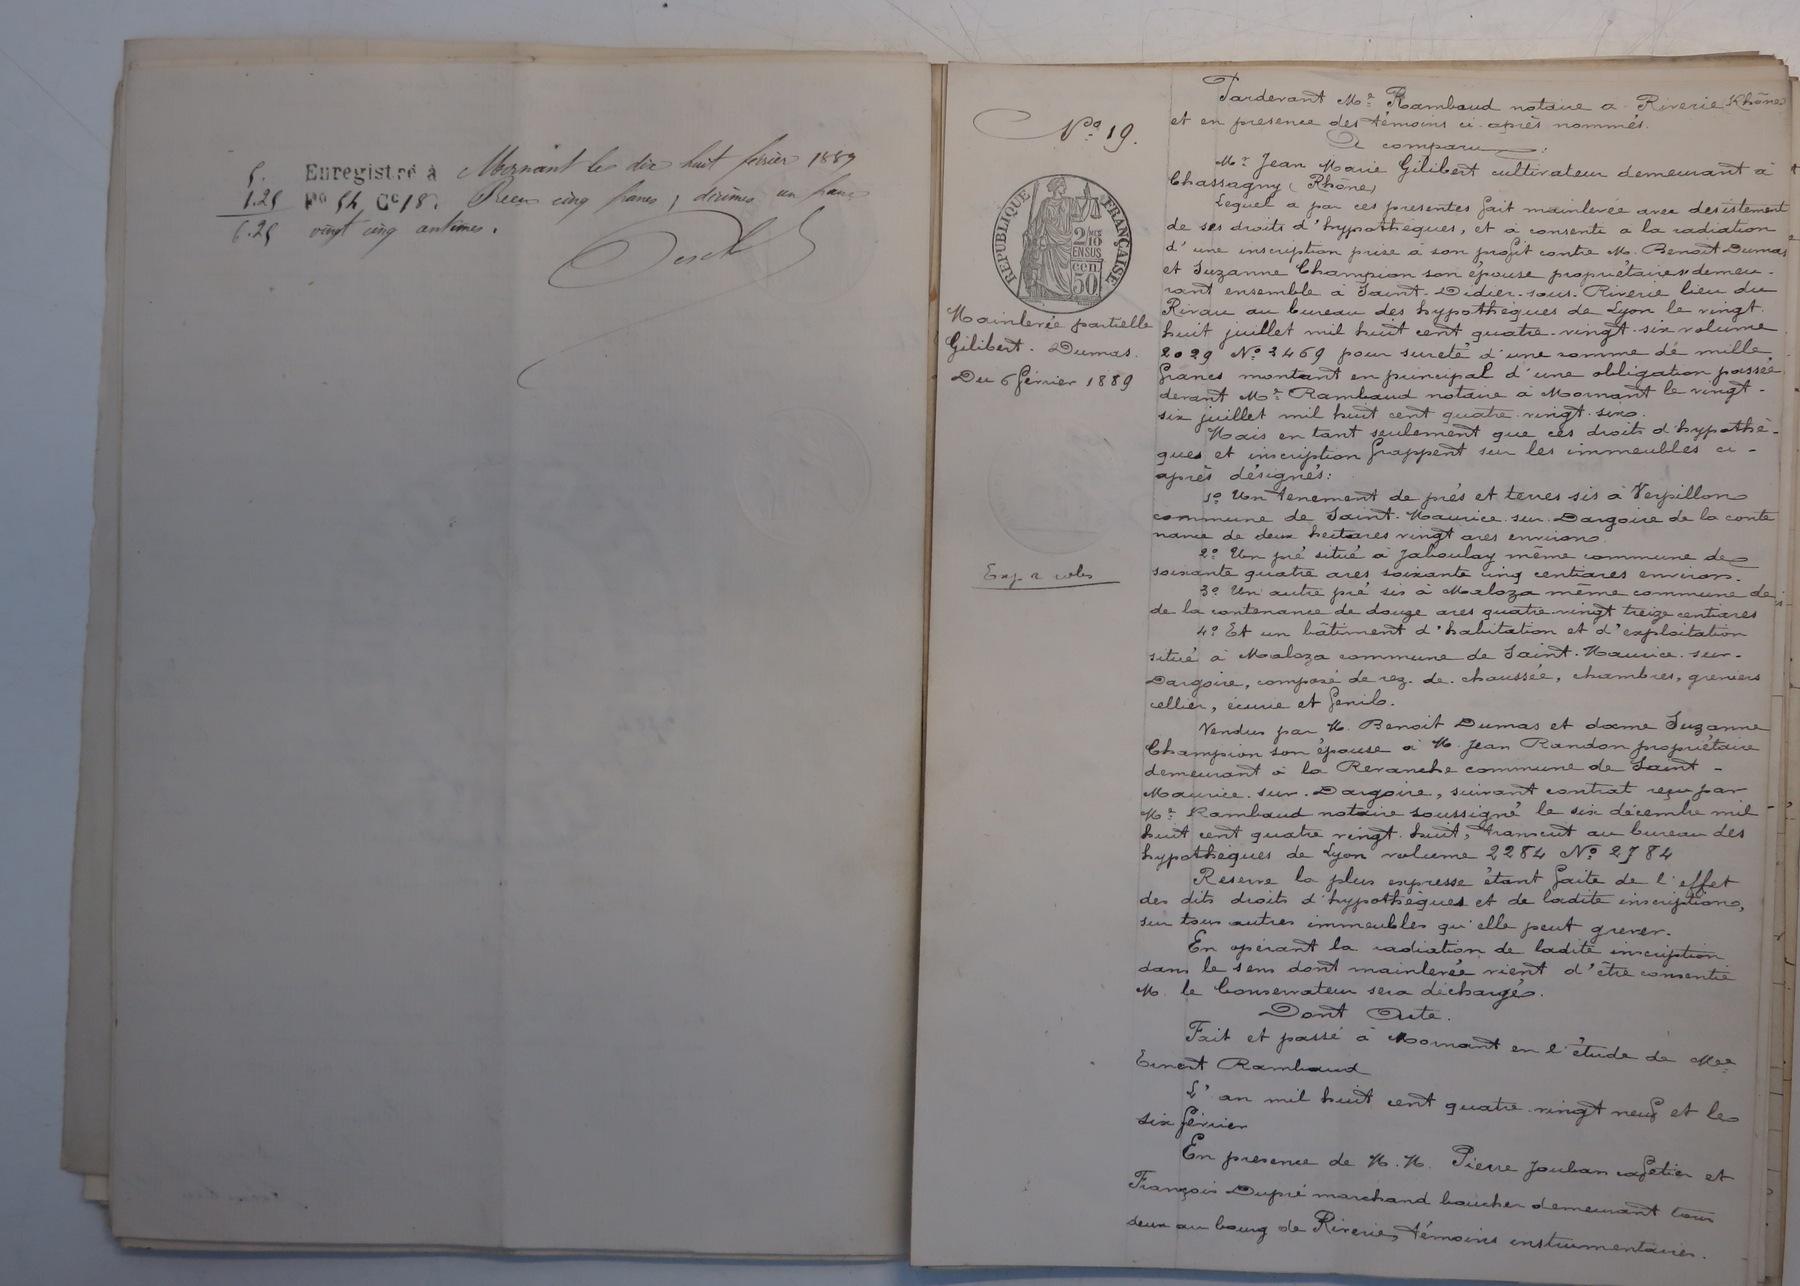 5. Enregistré à Mornant le dix huit février 1889
1.25 Fo 54 Co 18. Reçu cinq francs, décimes un franc
6.25 vingt cinq centimes.
No 19.
RÉPUBLIQUE FRANÇAISE
2/10 EN SUS
50 cen
Mainlevée partielle
Gilibert. Dumas.
Du 6 février 1889
Pardevant Me Rambaud notaire à Riverie (Rhône)
et en presence des témoins ci-après nommés.
A comparu :
Mr Jean Marie Gilibert cultivateur demeurant à
Chassagny (Rhône)
Lequel a par ces presentes fait mainlevée avec desistement
de ses droits d'hypothèques, et a consenti à la radiation
d'une inscription prise à son profit contre M. Benoit Dumas
et Suzanne Champion son épouse propriétaires demeu-
rant ensemble à Saint-Didier-sous-Riverie lieu du
Rivau au bureau des hypothèques de Lyon le vingt
huit juillet mil huit cent quatre-vingt-six volume
2029 No 3469 pour sureté d'une somme de mille
francs montant en principal d'une obligation passée
devant Me Rambaud notaire à Mornant le vingt-
six juillet mil huit cent quatre-vingt-six.
Mais en tant seulement que ces droits d'hypothè-
ques et inscription frappent sur les immeubles ci-
après désignés:
1o Un tenement de prés et terres sis à Verpillon
commune de Saint-Maurice-sur-Dargoire de la conte
nance de deux hectares vingt ares environ.
2o Un pré situé à Jaboulay même commune de
soixante quatre ares soixante cinq centiares environ.
3o Un autre pré sis à Maloza même commune de
de la contenance de douze ares quatre-vingt treize centiares
4o Et un bâtiment d'habitation et d'exploitation
situé à Maloza commune de Saint-Maurice-sur-
Dargoire, composé de rez-de-chaussée, chambres, greniers
cellier, écurie et fenil.
Vendus par M. Benoit Dumas et dame Suzanne
Champion son épouse à M. Jean Randon propriétaire
demeurant à la Revanche commune de Saint-
Maurice-sur-Dargoire, suivant contrat reçu par
Me Rambaud notaire soussigné le six décembre mil
huit cent quatre vingt-huit, transcrit au bureau des
hypothèques de Lyon volume 2284 No 2784
Reserve la plus expresse étant faite de l'effet
des dits droits d'hypothèques et de ladite inscription,
sur tous autres immeubles qu'elle peut grever.
En opérant la radiation de ladite inscription
dans le sens dont mainlevée vient d'être consentie
M. le Conservateur sera déchargé.
Dont Acte.
Fait et passé à Mornant en l'étude de Me
Ernest Rambaud
L'an mil huit cent quatre-vingt neuf et le
six février
En presence de M.M. Pierre Jouban cafetier et
François Dupré marchand boucher demeurant tous
deux au bourg de Riverie, témoins instrumentaires.